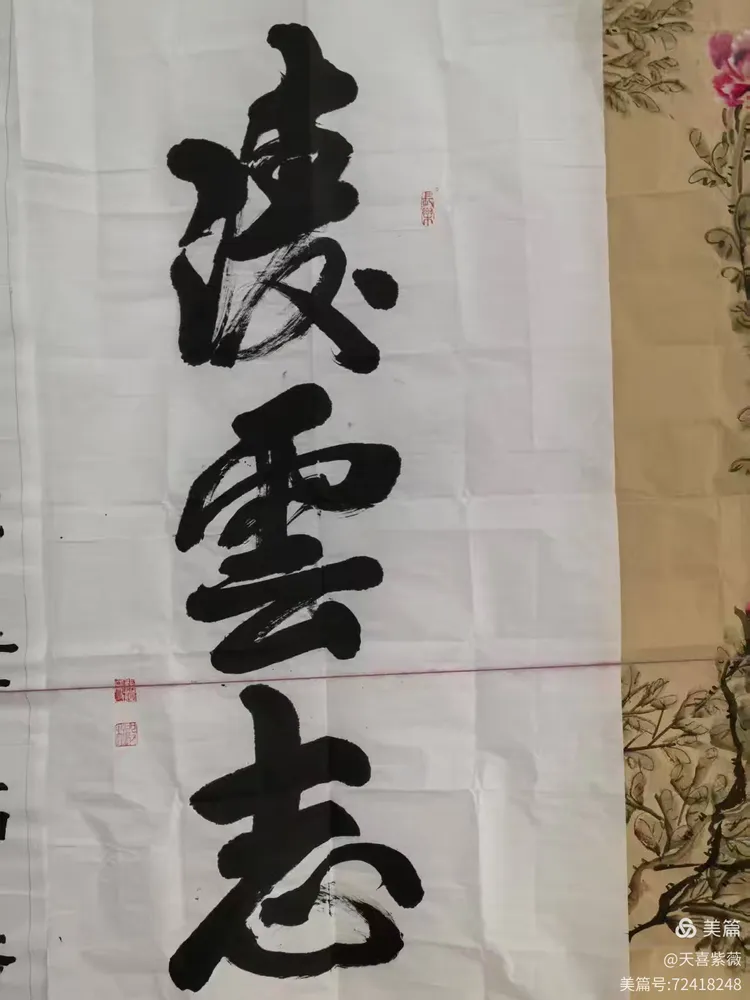 凌雲志
長樂
美篇
@天喜紫薇
美篇号:72418248